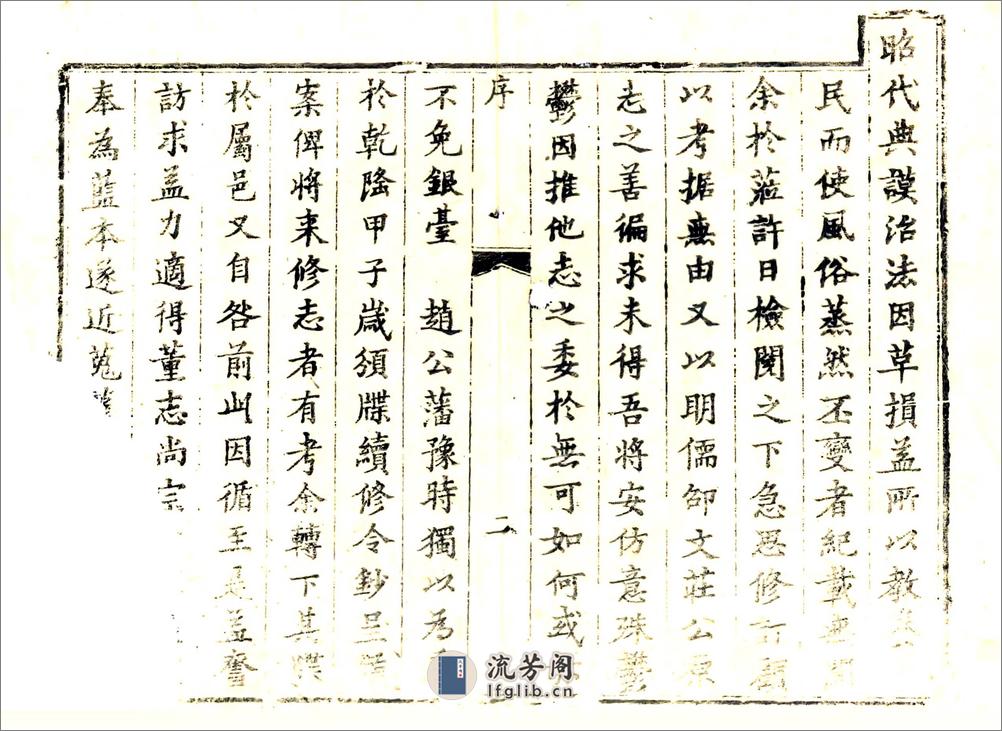 昭代典謨治法因革損益所以教
民而使風俗蒸然丕變者紀載
余於蒞許日檢閱之下急思修
以考据無由又以明儒邵文莊公
老之善徧求未得吾將安仿意殊鬱
鬱因推他志之委於無可如何或
序
二
不免銀臺 趙公藩豫時獨以為
於乾隆甲子歲頒牒續修令鈔呈
案俾將來修志者有考余轉下其牒
於屬邑又自咎前此因循至是益奮
訪求益力適得董志尚
奉為藍本遂近蒐
流芳阁
lfglib.cn